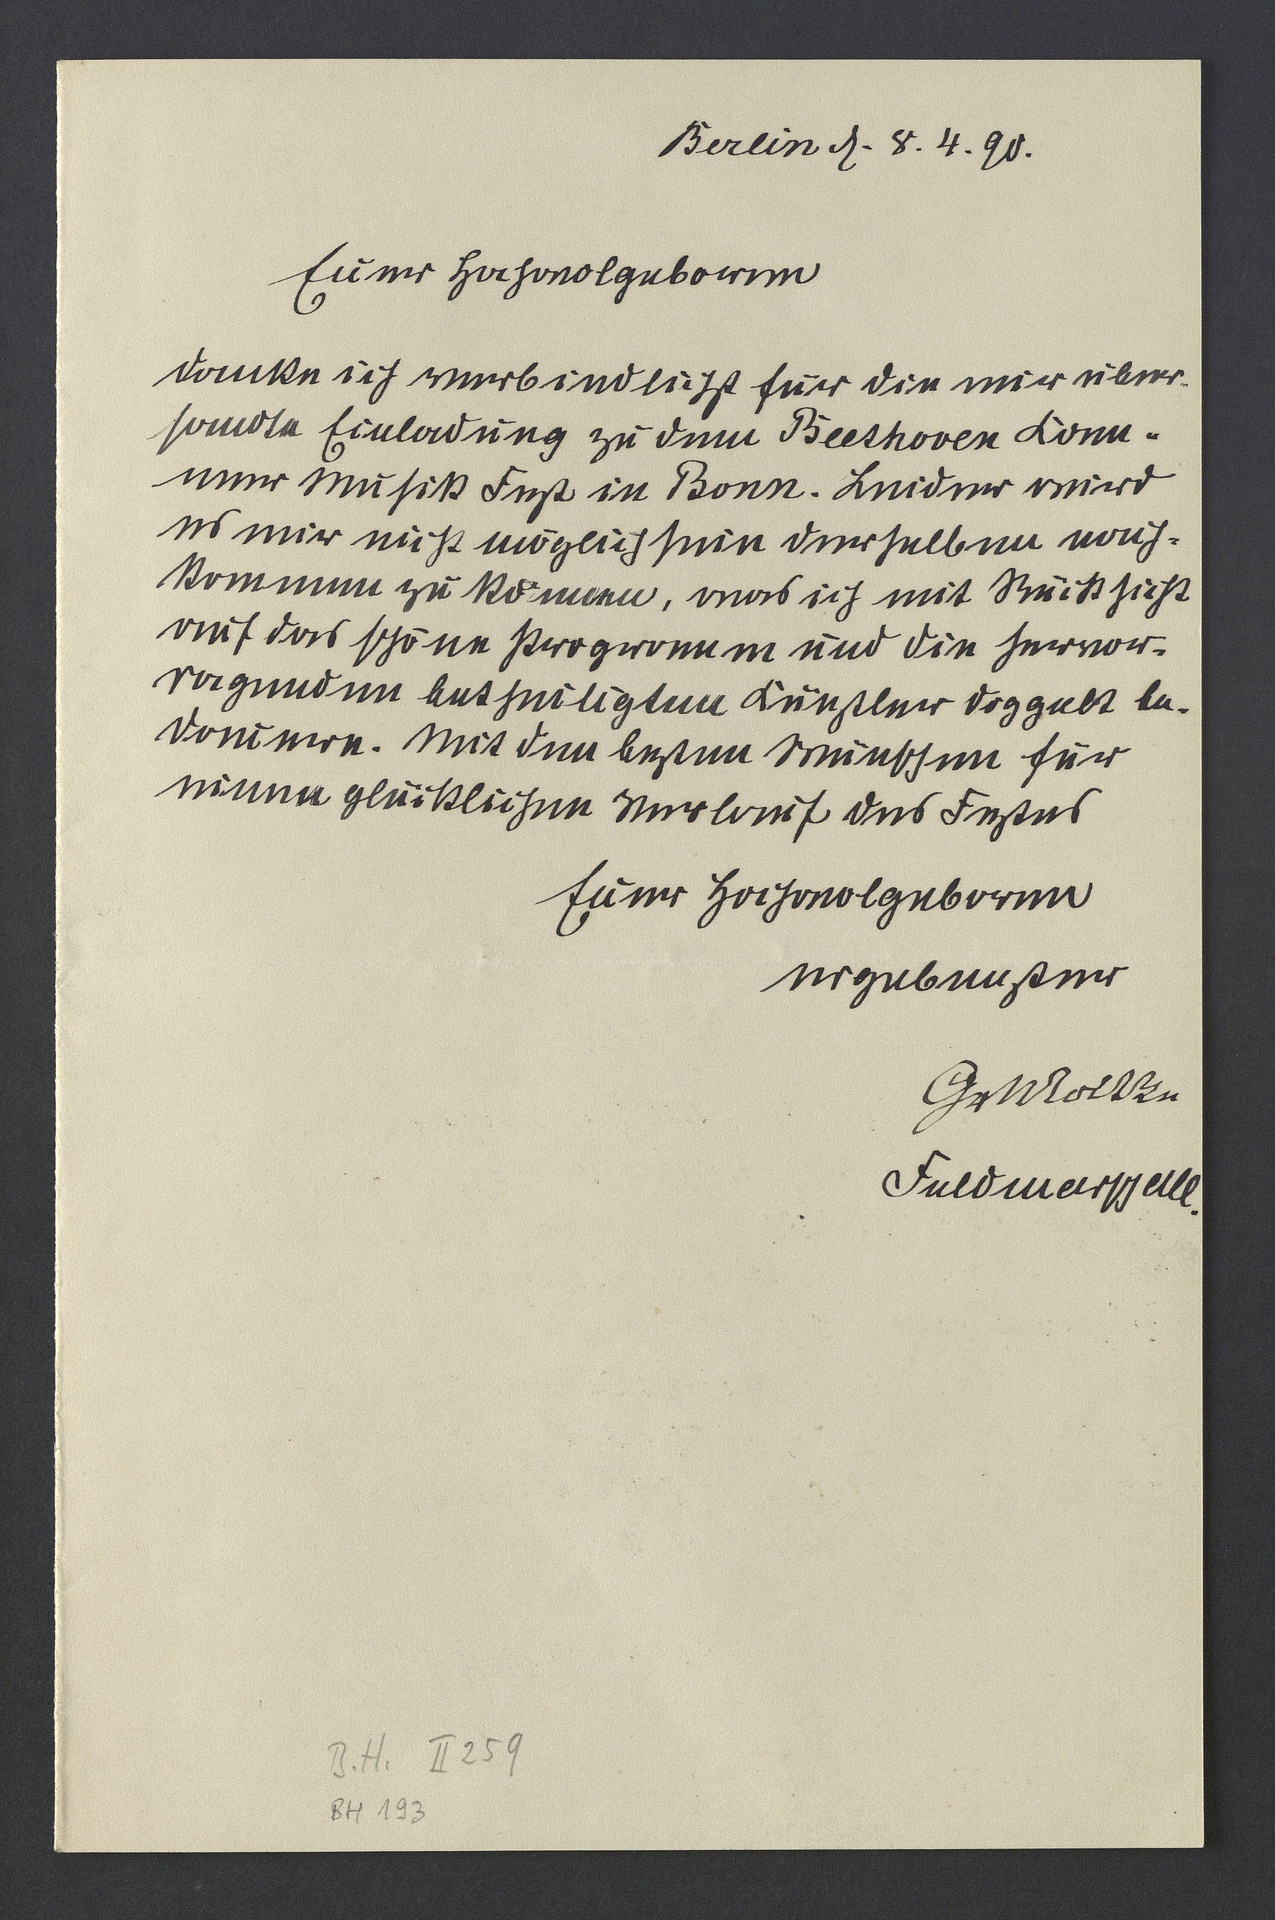 Berlin d. 8. 4. 90.
Euer Hochwolgeboren
danke ich verbindlichst für die mir über-
sandte Einladung zu dem Beethoven Kam-
mer Musik Fest in Bonn. Leider wird
es mir nicht möglich sein derselben nach-
kommen zu können, was ich mit Rücksicht
auf das schöne Programm und die hervor-
ragenden betheiligten Künstler doppelt be-
dauere. Mit den besten Wünschen für
einen glücklichen Verlauf des Festes
Euer Hochwolgeboren
ergebenster
Gr Moltke
Feldmarschall.
B.H. II 259
BH 193